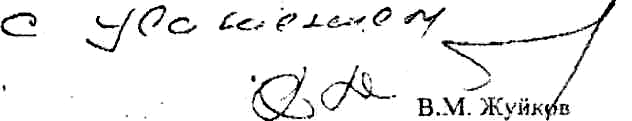 с уважением
В.М. Жуйков